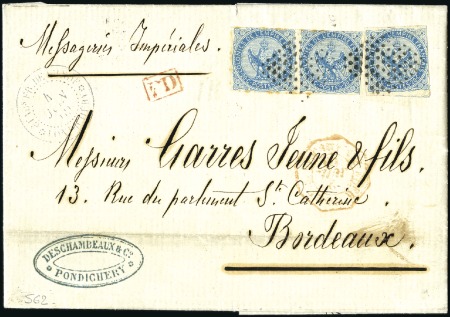 Messageries Impériales.
PD
Messieurs Garres Jeune & fils.
13. Rue du parlement St. Catherine,
Bordeaux.
DESCHAMBEAUX & Co.
PONDICHERY
562-